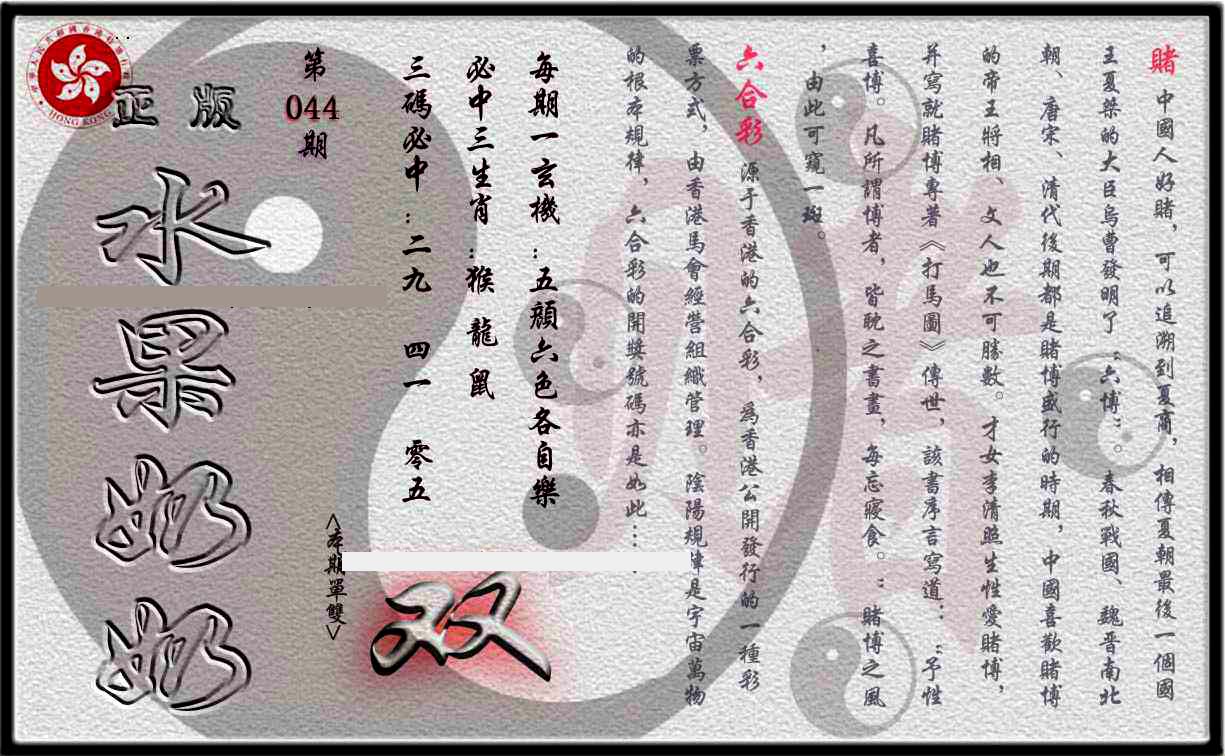 賭 中國人好賭，可以追溯到夏商，相傳夏朝最後一個國
王夏桀的大臣烏曹發明了“六博”。春秋戰國、魏晉南北
朝、唐宋、清代後期都是賭博盛行的時期，中國喜歡賭博
的帝王將相、文人也不可勝數。才女李清照生性愛賭博，
并寫就賭博專著《打馬圖》傳世，該書序言寫道：“予性
喜博。凡所謂博者，皆耽之書畫，每忘寢食。”賭博之風
，由此可窺一斑。
六合彩 源于香港的六合彩，為香港公開發行的一種彩
票方式，由香港馬會經營組織管理。陰陽規律是宇宙萬物
的根本規律，六合彩的開獎號碼亦是如此……
每期一玄機：五顏六色各自樂
必中三生肖：猴 龍 鼠
三碼必中：二九 四一 零五
第
044
期
<本期單雙>
双
正版
水果奶奶
HONG KONG